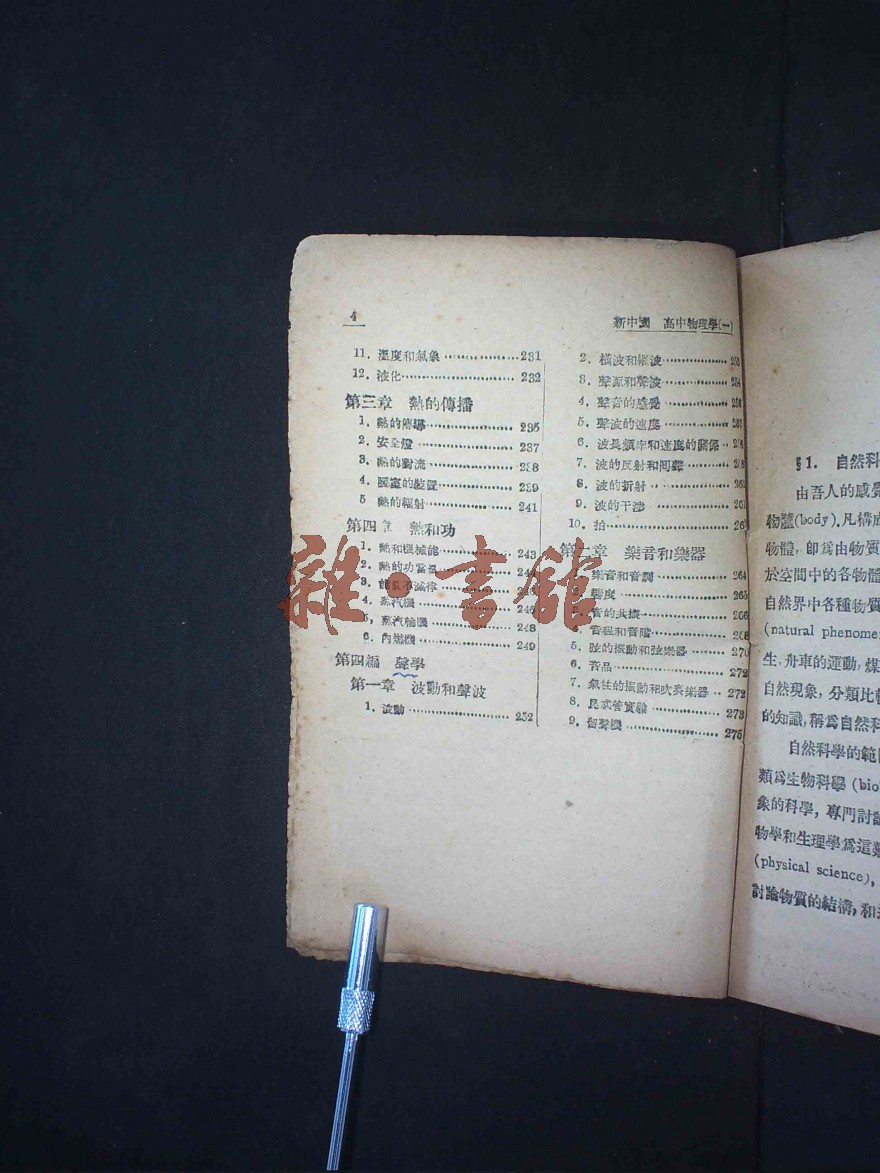 4
新中國 高中物理學(一)
11. 溼度和氣象 231
12. 液化 232
第三章 熱的傳播
1. 熱的傳導 235
2. 安全燈 237
3. 熱的對流 238
4. 暖室的裝置 239
5 熱的輻射 241
第四章 熱和功
1. 熱和機械能 243
2. 熱的功當量
3. 能量不滅律
4. 蒸汽機 246
5. 蒸汽輪機 248
6. 內燃機 249
第四編 聲學
第一章 波動和聲波
1. 波動 252
2. 橫波和縱波
3. 聲源和聲波
4. 聲音的感覺
5. 聲波的速度
6. 波長頻率和速度的關係
7. 波的反射和回聲
8. 波的折射
9. 波的干涉
10. 拍
第二章 樂音和樂器
樂音和音調 264
響度 265
音的共振 266
音程和音階 268
5. 弦的振動和弦樂器 270
6. 音品 272
7. 氣柱的振動和吹奏樂器 272
8. 昆忒管實驗 273
9. 留聲機 275
§1. 自然科
由吾人的感覺
物體(body).凡構成
物體,卽爲由物質
於空間中的各物體
自然界中各種物質
(natural phenome
生,舟車的運動,煤
自然現象,分類比較
的知識,稱爲自然科
自然科學的範
類爲生物科學 (biol
象的科學,專門討論
物學和生理學爲這類
(physical science),
討論物質的結構,和
雜·書館